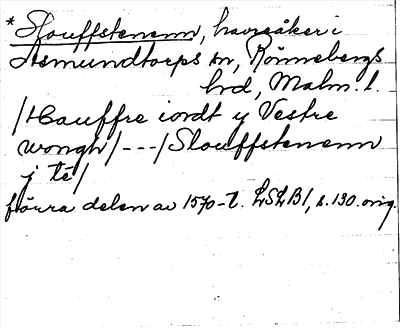 * Slouffstenenn, havreåker i
Asmundtorps sn, Rönnebergs
hd, Malm. l.
/Hauffre iordt y Vestre
wongh/---/Slouffstenenn
j té/
förra delen av 1570-t. LSLB1, s. 130. orig.